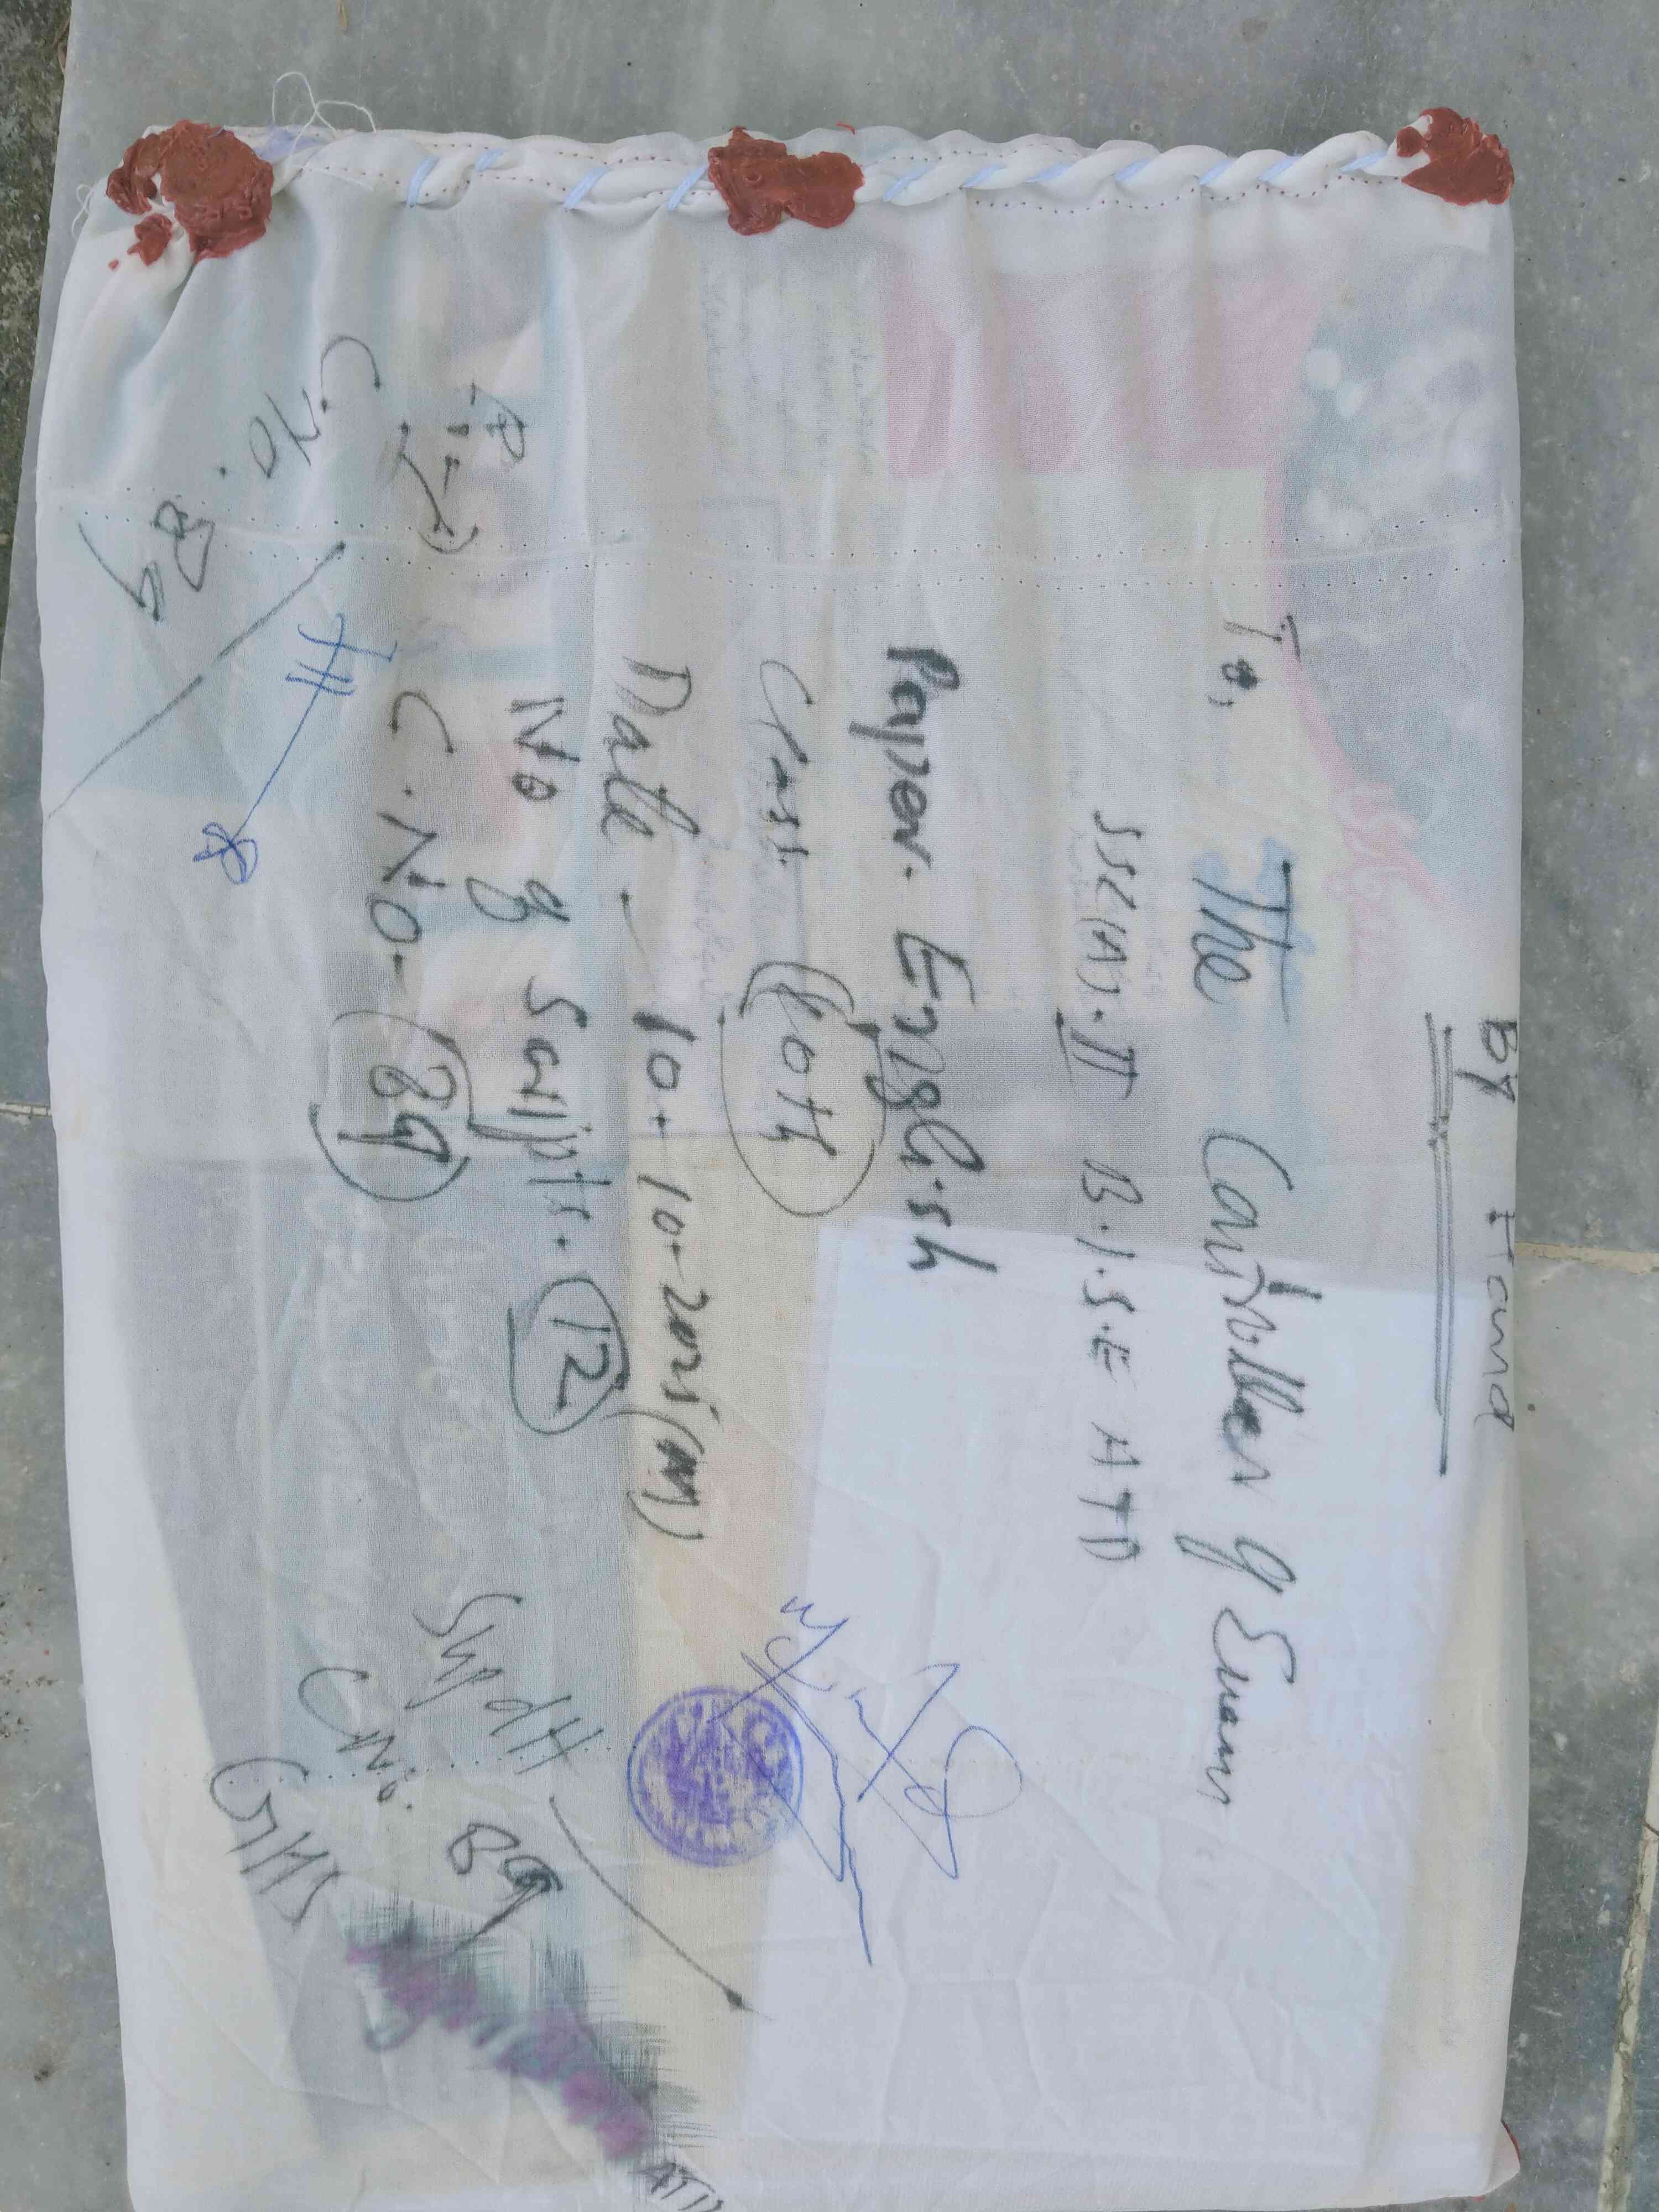 By Hand
To,
The Controller of Exam
SSC(A)-II B.I.S.E ATD
Paper. English
Class 10th
Date - 10-10-2025 (M)
No of Scripts. 12
C.No- 89
C.No. 89
Supdtt
C No. 89
GHS
ATD